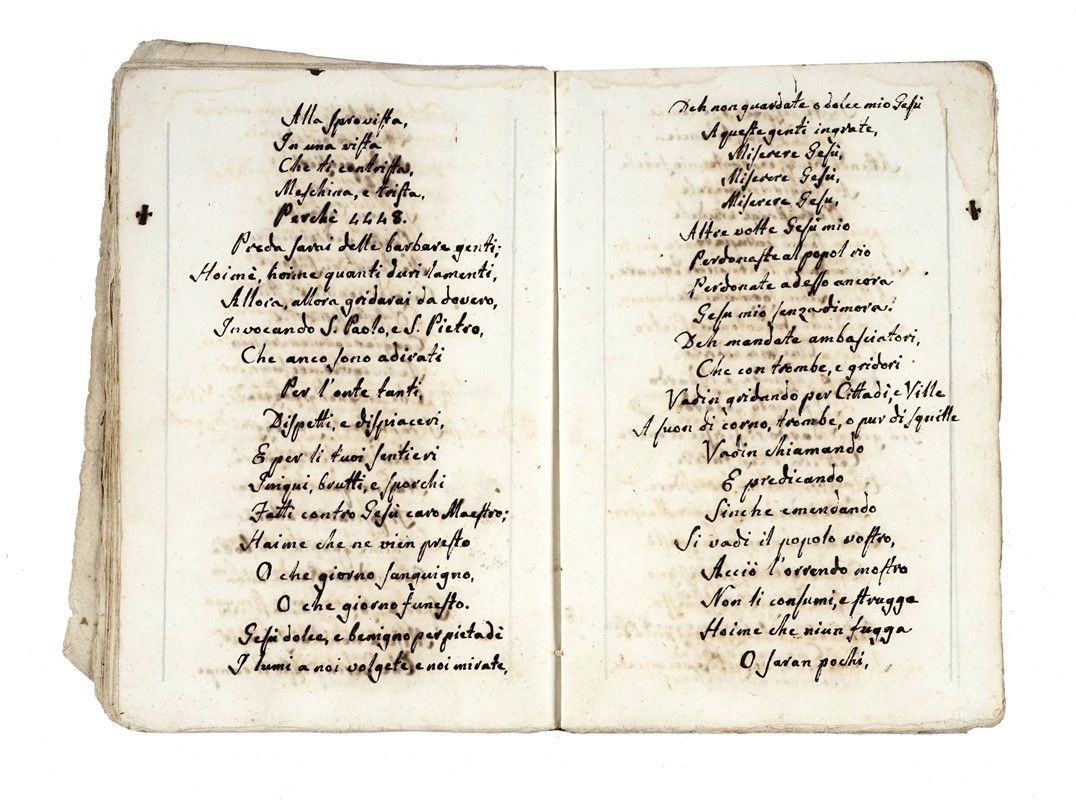 Alla sprovista,
In una vista
Che ti contrista,
Meschina, e trista,
Perchè 4448.
Preda sarai delle barbare genti;
Hoimè, hoime quanti duri lamenti,
Allora, allora gridarai da dovero,
Invocando S. Paolo, e S. Pietro,
Che anco sono adirati
Per l'onte tanti,
Dispetti, e dispiaceri,
E per li tuoi sentieri
Iniqui, brutti, e sporchi
Fatti contro Gesù caro Maestro;
Haime che ne vien presto
O che giorno sanguigno,
O che giorno funesto.
Gesù dolce, e benigno per pietadi
I lumi a noi volgete, e noi mirate,
Deh non guardate o dolce mio Gesù
A queste genti ingrate,
Miserere Gesù,
Miserere Gesù,
Miserere Gesu,
Altre volte Gesù mio
Perdonaste al popol rio
Perdonate adesso ancora
Gesu mio senza dimora.
Deh mandate ambasciatori,
Che con trombe, e gridori
Vadin gridando per Cittadi, e Ville
A suon di corno, trombe, o pur di squille
Vadin chiamando
E predicando
Sinche emendando
Si vadi il popolo vostro,
Acciò l'orrendo mostro
Non li consumi, e strugga
Hoime che niun fugga
O saran pochi,